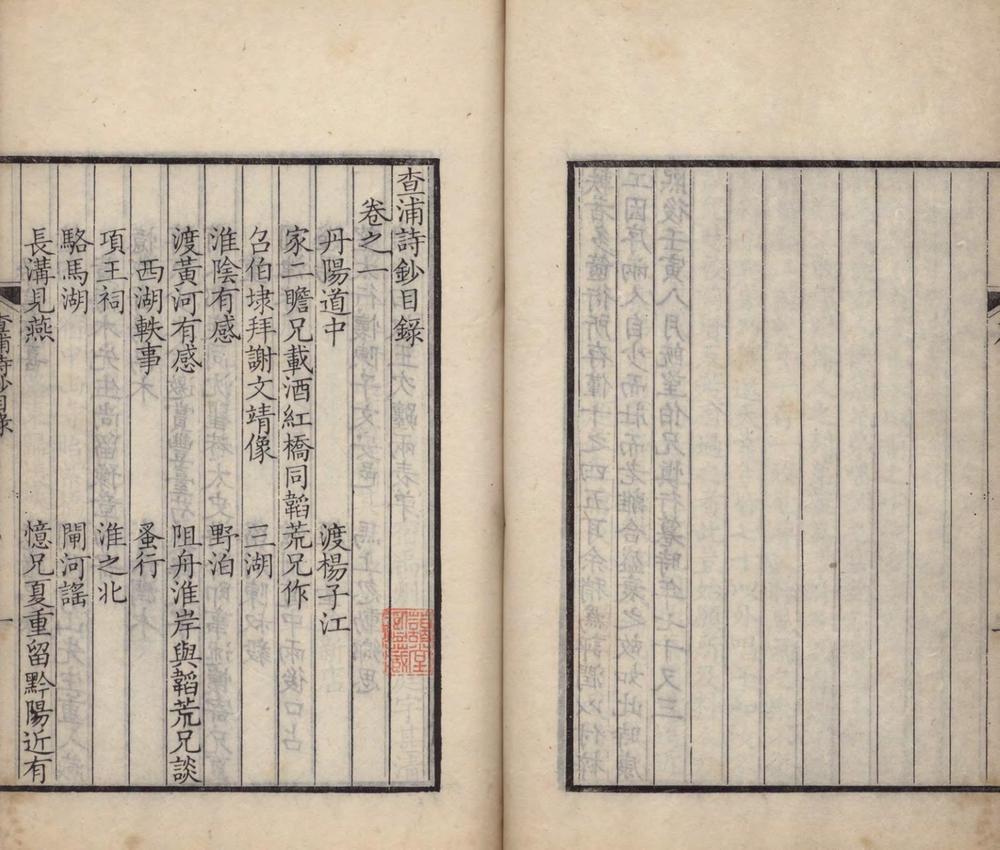 查浦詩鈔目錄
卷之一
丹陽道中　渡楊子江
家二瞻兄載酒紅橋同韜荒兄作
召伯埭拜謝文靖像　三湖
淮陰有感　野泊
渡黃河有感　阻舟淮岸與韜荒兄談
西湖軼事　蚤行
項王祠　淮之北
駱馬湖　閘河謠
長溝見燕　憶兄夏重留黔陽近有
查浦詩鈔目錄　一